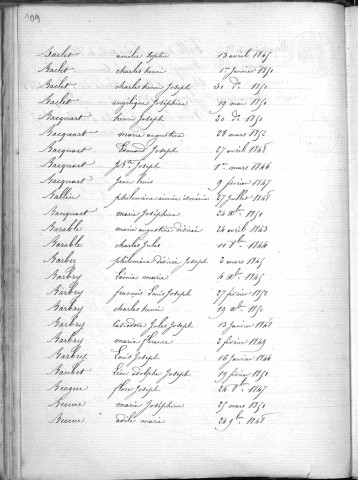 109
Baclet amélie Sophie 13 avril 1845
Baclet charles henri 1er Janvier 1850
Baclet charles henri Joseph 31 do 1850
Baclet angélique Joséphine 19 mai 1850
Bacquart henri Joseph 20 do 1850
Bacquart marie augustine 28 mars 1852
Bacquart Edouard Joseph 27 avril 1848
Bacquart Jh Bte Joseph 1er mars 1846
Bacquart Jean Louis 9 février 1847
Ballin philomène aimée 27 Juillet 1848
Banquart marie Joséphine 24 Xbre 1850
Barable marie augustine Désirée 24 avril 1843
Barable charles Jules 11 8bre 1844
Barbez philomène Désirée Joseph 2 mars 1845
Barbry Léonie marie 4 Xbre 1845
Barbry françois Louis Joseph 27 février 1850
Barbry charles henri 19 Xbre 1850
Barbry Jules Joseph 13 Janvier 1848
Barbry marie florence 2 février 1849
Barbry Louis Joseph 16 Janvier 1844
Barbet Léon adolphe Joseph 19 février 1850
Beague flore Joseph 24 8bre 1845
Becue marie Joséphine 25 mars 1850
Becue adèle marie 24 9bre 1848